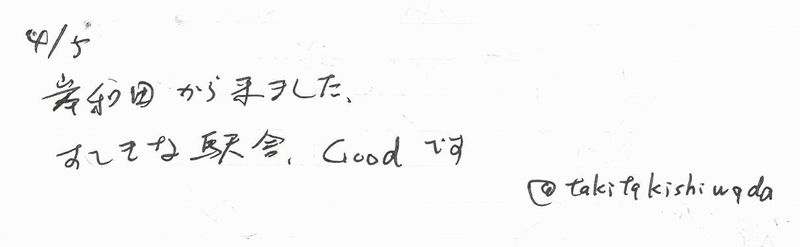 4/5
岸和田から来ました、
すてきな駅舎、Goodです
@takitakishiwada